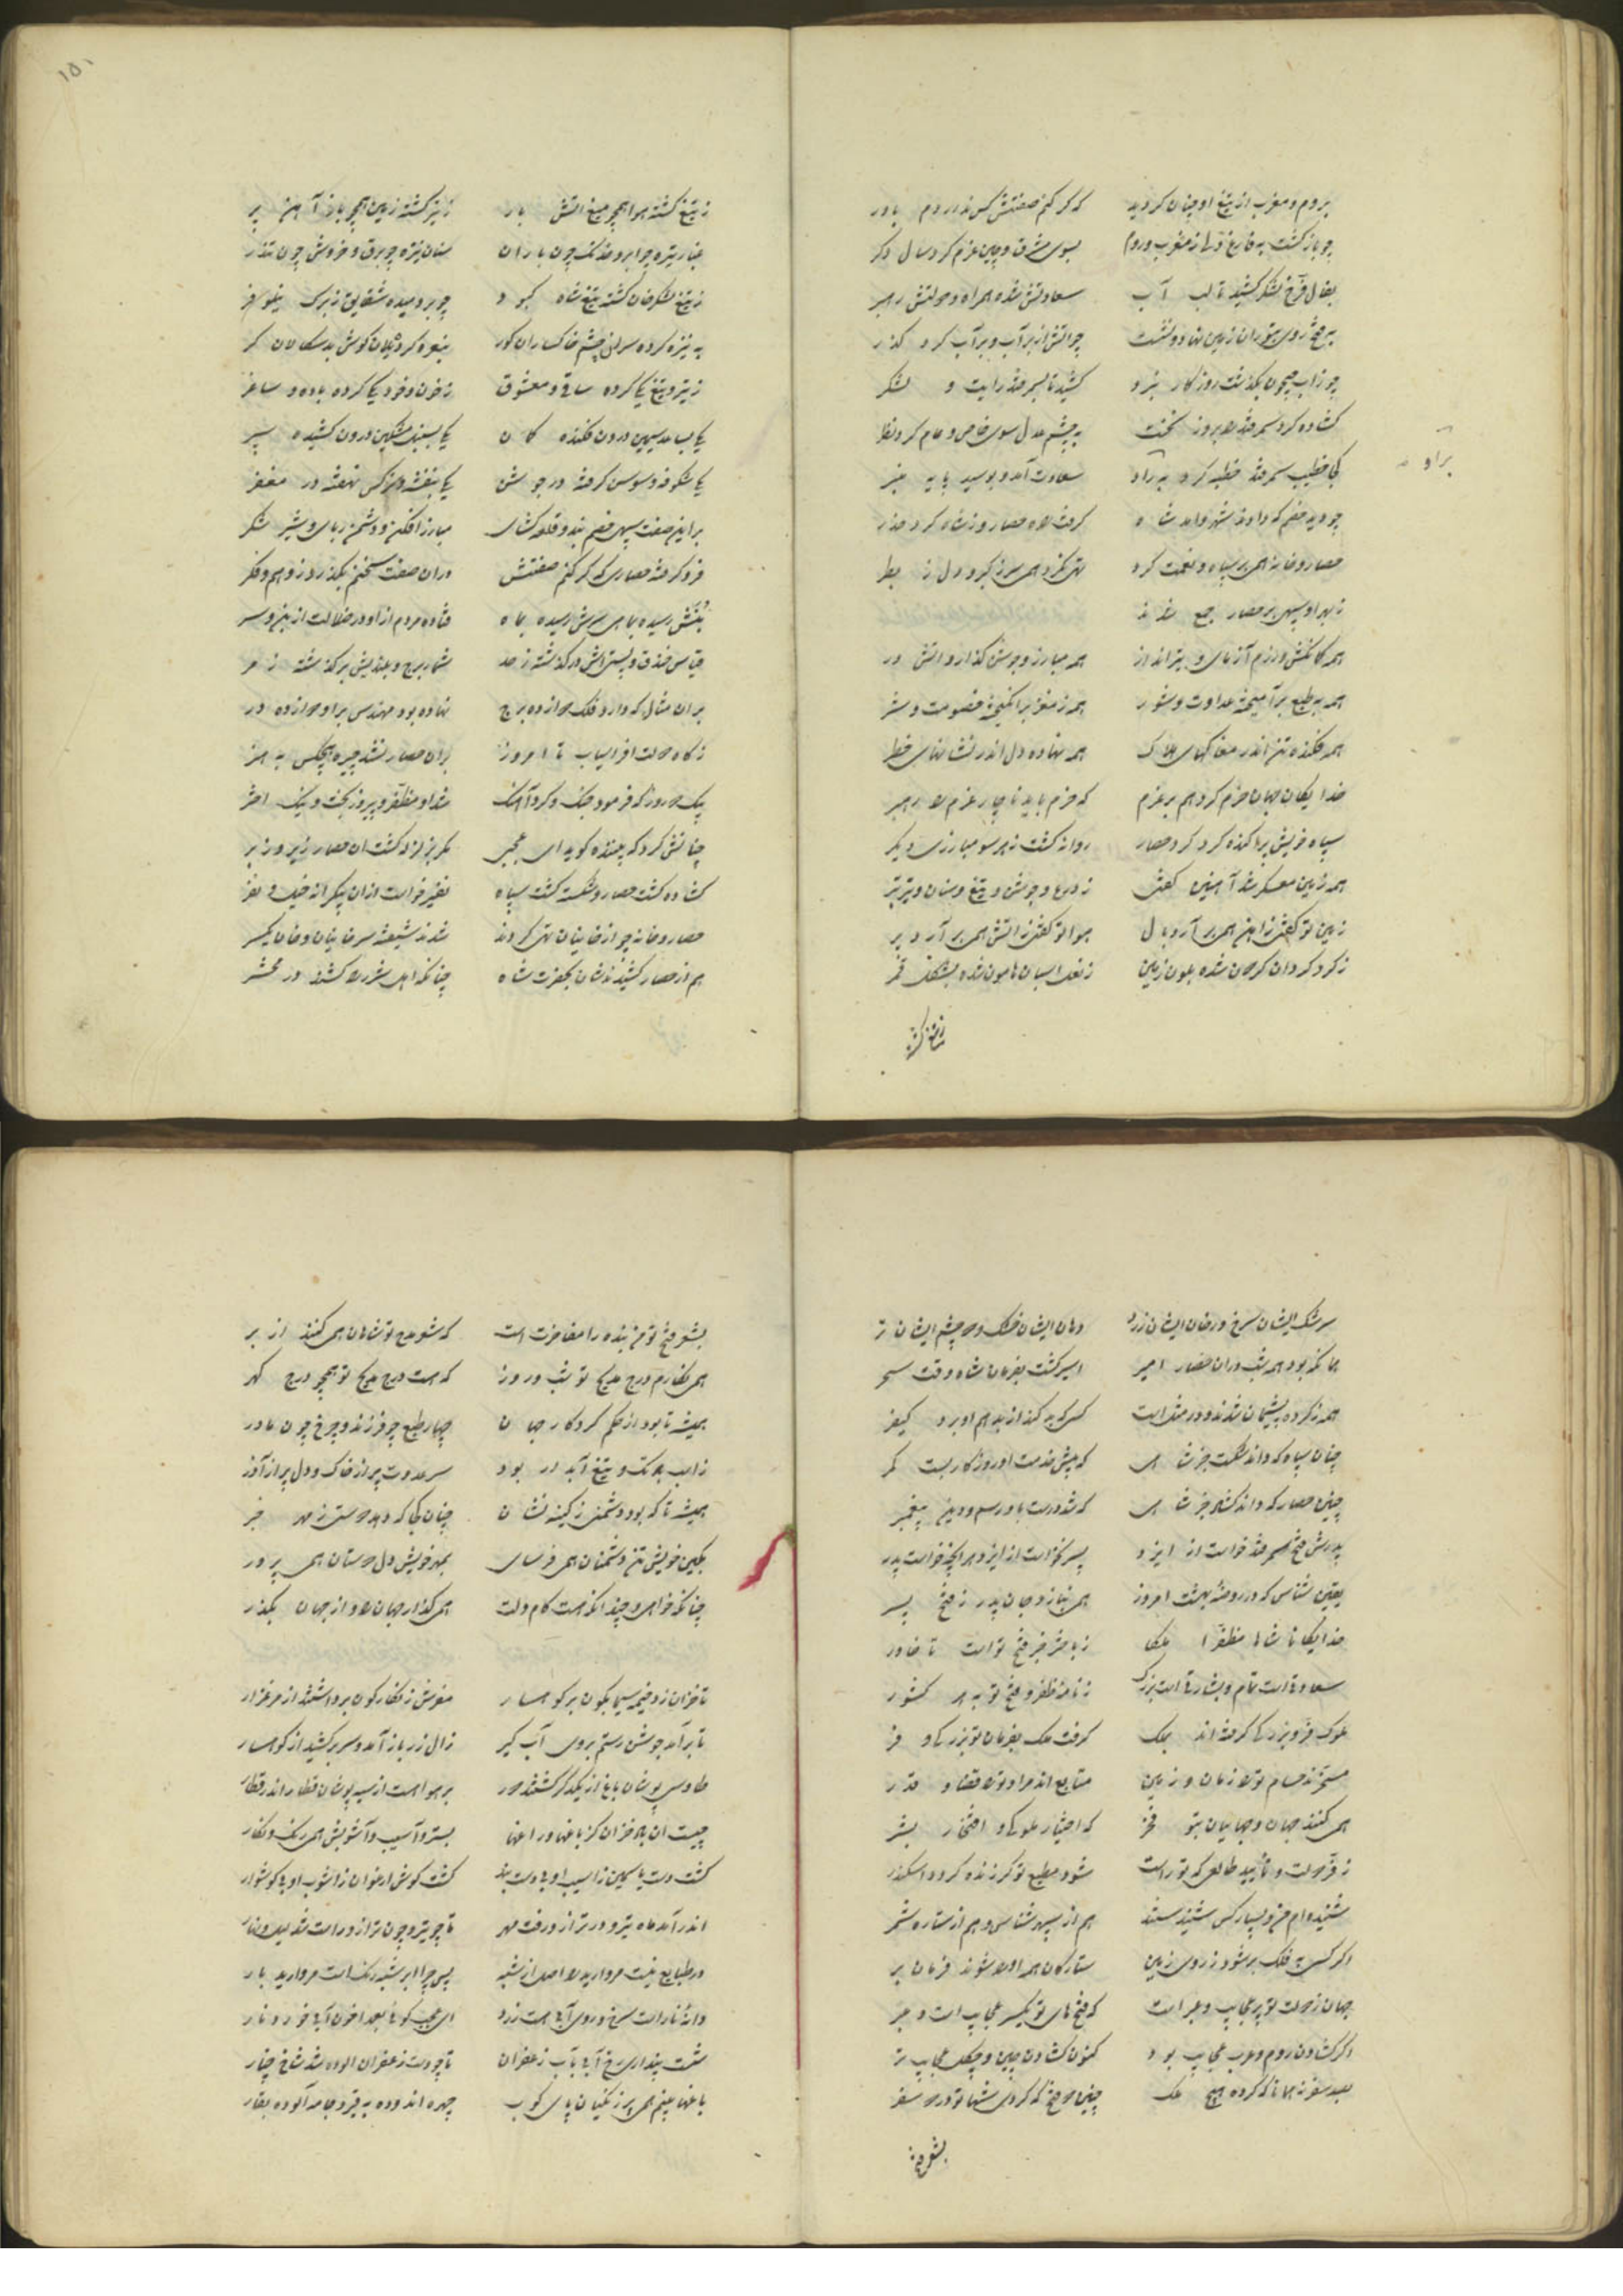 ۱۵۰
بروم و مغرب از تیغ او چنان کردید که گر کنم صفتش کس نداردم باور
چو بازگشت به فارغ دل از مغرب و روم بسوی مشرق و چین عزم کرد سال دگر
بفال فرخ لشکر کشید تا لب آب سعادتش شده همراه و دولتش رهبر
چو آتش از بر آب و بر آب کرد گذر
چو ز آب جیحون بگذشت روزگار نبرد کشید تا بسمرقند رایت و لشکر
گشاده کرد سمرقند را بروز نخست به چشم عدل سوی خاص و عام کرد نظر
کجا خطیب سمرقند خطبه کرد براو سعادت آمد و بوسید پایه منبر
براو
چو دید خصم که دادند شهر و آمد شاه گرفت راه حصار و ز شاه کرد حذر
حصار و خانه همی پر سپاه و نعمت کرد تهی نکرد همی سر ز کبر و دل ز بطر
ز بهر او سپهی بر حصار جمع شدند
همه کمانکش و رزم آزمای و تیرانداز همه مبارز و جوشن گذار و آتش در
همه به طبع برآمیخته عداوت و شور همه ز مغز برانگیخته خصومت و شر
همه فکنده تن اندر مغاکهای هلاک همه نهاده دل اندر نشانهای خطر
خدایگان جهان حزم کرد هم بر عزم که حزم باید ناچار عزم را رهبر
سپاه خویش پراکنده کرد گرد حصار روانه گشت ز هر سو مبارزی دیگر
همه زمین معسکر شد آهنین گفتی ز درع و جوشن و تیغ و سنان و تیر و تبر
زمین تو گفتی ز آهن همی برآرد بال هوا تو گفتی ز آتش همی برآرد پر
ز گرد گردان گردان شده بلون زمین ز نعل اسبان هامون شده بشکل قمر
ز تیغ گشته هوا همچو میغ آتش بار ز تیر گشته زمین همچو باز آهن پر
غبار تیره چو ابر و خدنگ چون باران سنان نیزه چو برق و خروش چون تندر
ز تیغ لشکر خان گشته تیغ شاه کبود چو بردمیده شقایق ز برگ نیلوفر
به نیزه کرده سران چشم خاکساران کور بنعره کرده یلان گوش بدسگالان کر
ز تیر و تیغ یکی کرده ساقی و معشوق ز خون و خود یکی کرده باده و ساغر
یکی بساعد سیمین درون فکنده کمان یکی بسینه مشکین درون کشیده سپر
یکی شکوفه و سوسن گرفته در جوشن یکی بنفشه و نرگس نهفته در مغفر
براین صفت سپهی خصم بند و قلعه گشای مبارز افکن و دشمن ربای و شیر شکر
فرو گرفته حصاری که گر کنم صفتش در آن صفت سخنم بگذرد ز وهم و فکر
بنش رسیده بماهی سرش رسیده بماه فتاده مردم از او در ضلالت از بن و سر
قیاس خندق و پستیش درگذشته ز حد شمار برج و بلندیش برگذشته ز مر
بران مثال که دارد فلک دوازده برج نهاده بود مهندس براو دوازده در
ز گاه دولت افراسیاب تا امروز بران حصار نشد چیره هیچکس به هنر
بیک دو روز که فرمود جنگ و کرد آهنگ شد او مظفر و پیروز بخت و نیک اختر
چنانش کرد که بیننده گوید ای عجبی مگر بزلزله گشت آن حصار زیر و زبر
گشاده گشت حصار و شکسته گشت سپاه نفیر خواست از آن بیکرانه خیل و نفر
حصار و خانه چو از خانیان تهی کردند شدند شیفته سر خانیان و خان یکسر
هم از حصار کشیدندشان بحضرت شاه چنانکه اهل شرر را کشند در محشر
سرشک ایشان سرخ و رخان ایشان زرد دهان ایشان خشک و دو چشم ایشان تر
همانکه بود همه شب در آن حصار امیر اسیر گشت بفرمان شاه وقت سحر
همه ز کرده پشیمان شدند و در مثل است کسی که بد کند از بد هم او برد کیفر
چنان سپاه که داند شکست جز شاهی که پیش خدمت او روزگار بست کمر
چنین حصار که داند گشاد جز شاهی که شد درست باو رسم و دین پیغمبر
پدرش فتح سمرقند خواست از ایزد پسر بخواست از ایزد هر آنچه خواست پدر
یقین شناس که در روضه بهشت امروز همی بنازد جان پدر ز فتح پسر
خدایگانا شاها مظفرا ملکا ز باختر خبر فتح تو است تا خاور
سعادتی است تمام و بشارتی است بزرگ ز نامه ظفر و فتح تو به هر کشور
ملوک فر و بزرگی گرفته اند بملک گرفت ملک بفرمان تو بزرگی و فر
مسخرند حسام تو را زمان و زمین متابع اند مراد تو را قضا و قدر
همی کنند جهان و جهانیان بتو فخر که اختیار ملوکی و افتخار بشر
ز فر دولت و تأیید طالعی که تو راست شود مطیع تو گر زنده گردد اسکندر
شنیده ام من و بسیار کس شنیدستند هم از سپهرشناس و هم از ستاره شمر
اگر کسی به فلک بر شود ز روی زمین ستارگان همه او را شوند فرمان بر
جهان ز دولت تو پر عجایب و عبر است که فتح های تو یکسر عجایب است و عبر
اگر گشادن روم و عرب عجایب بود کنون گشادن چین و چگل عجایب تر
بصد سفر نه همانا که کرده هیچ ملک چنین دو فتح که کردی شها تو در دو سفر
بشعر فتح
بشعر فتح تو من بنده را مفاخرت است که شعر مدح تو شاهان همی کنند از بر
همی نگارم درج مدیح تو شب و روز که هست درج مدیح تو همچو درج گهر
همیشه تا بود از حکم کردگار جهان چهار طبع چو فرزند و چرخ چون مادر
سر عدوت پر از خاک و دل پر از آذر
همیشه تا که بود دشمنی ز کینه نشان چنان کجا که دهد دوستی ز مهر خبر
بکین خویش تن دشمنان همی فرسای بمهر خویش دل دوستان همی پرور
چنانکه خواهی و چندانکه هست کام دلت همی گذار جهان را و از جهان بگذر
تا خزان زد خیمه سیمابگون بر کوهسار مفرش زنگارگون برداشتند از مرغزار
تا برآمد جوشن رستم بروی آبگیر زال زر باز آمد و سر برکشید از کوهسار
طاوسی پوشان باغ از یکدگر گشتند دور بر هوا هست از سیه پوشان قطار اندر قطار
چیست این باد خزان کز باغها و راغها بستر و آسیب و آشوبش همی رنگ و نگار
گشت دست یاسمین ز آسیب او بی دست بند گشت گوش ارغوان ز آشوب او بی گوشوار
اندر آمد ماه تیر و در ترازو رفت مهر تا چو تیر و چون ترازو راست شد لیل و نهار
در طبایع نیست مروارید را اصل از شبه پس چرا ابر شبه رنگ است مروارید بار
دانه نار است سرخ و روی آبی هست زرد ای عجب گوئی بعمدا خون آبی خورد نار
شست پنداری رخ آبی بآب زعفران تا چو دست زعفران آلوده شد شاخ چنار
باغها بینم همی پر زنگیان پای کوب چهره اندوده به قیر و جامه آلوده بقار